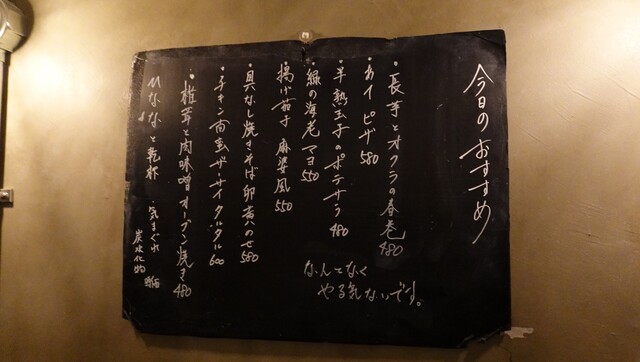 今日のおすすめ
・長芋とオクラの春巻 480
・カイピザ 580
・半熟玉子のポテサラ 480
・緑の海老マヨ 550
・揚げ茄子 麻婆風 550
・具なし焼きそば卵黄のせ 580
・チキン南蛮ザーサイタルタル 600
・椎茸と肉味噌オーブン焼き 480
ひななと乾杯
・気まぐれ炭水化物
なんてなく
やる気ないです。